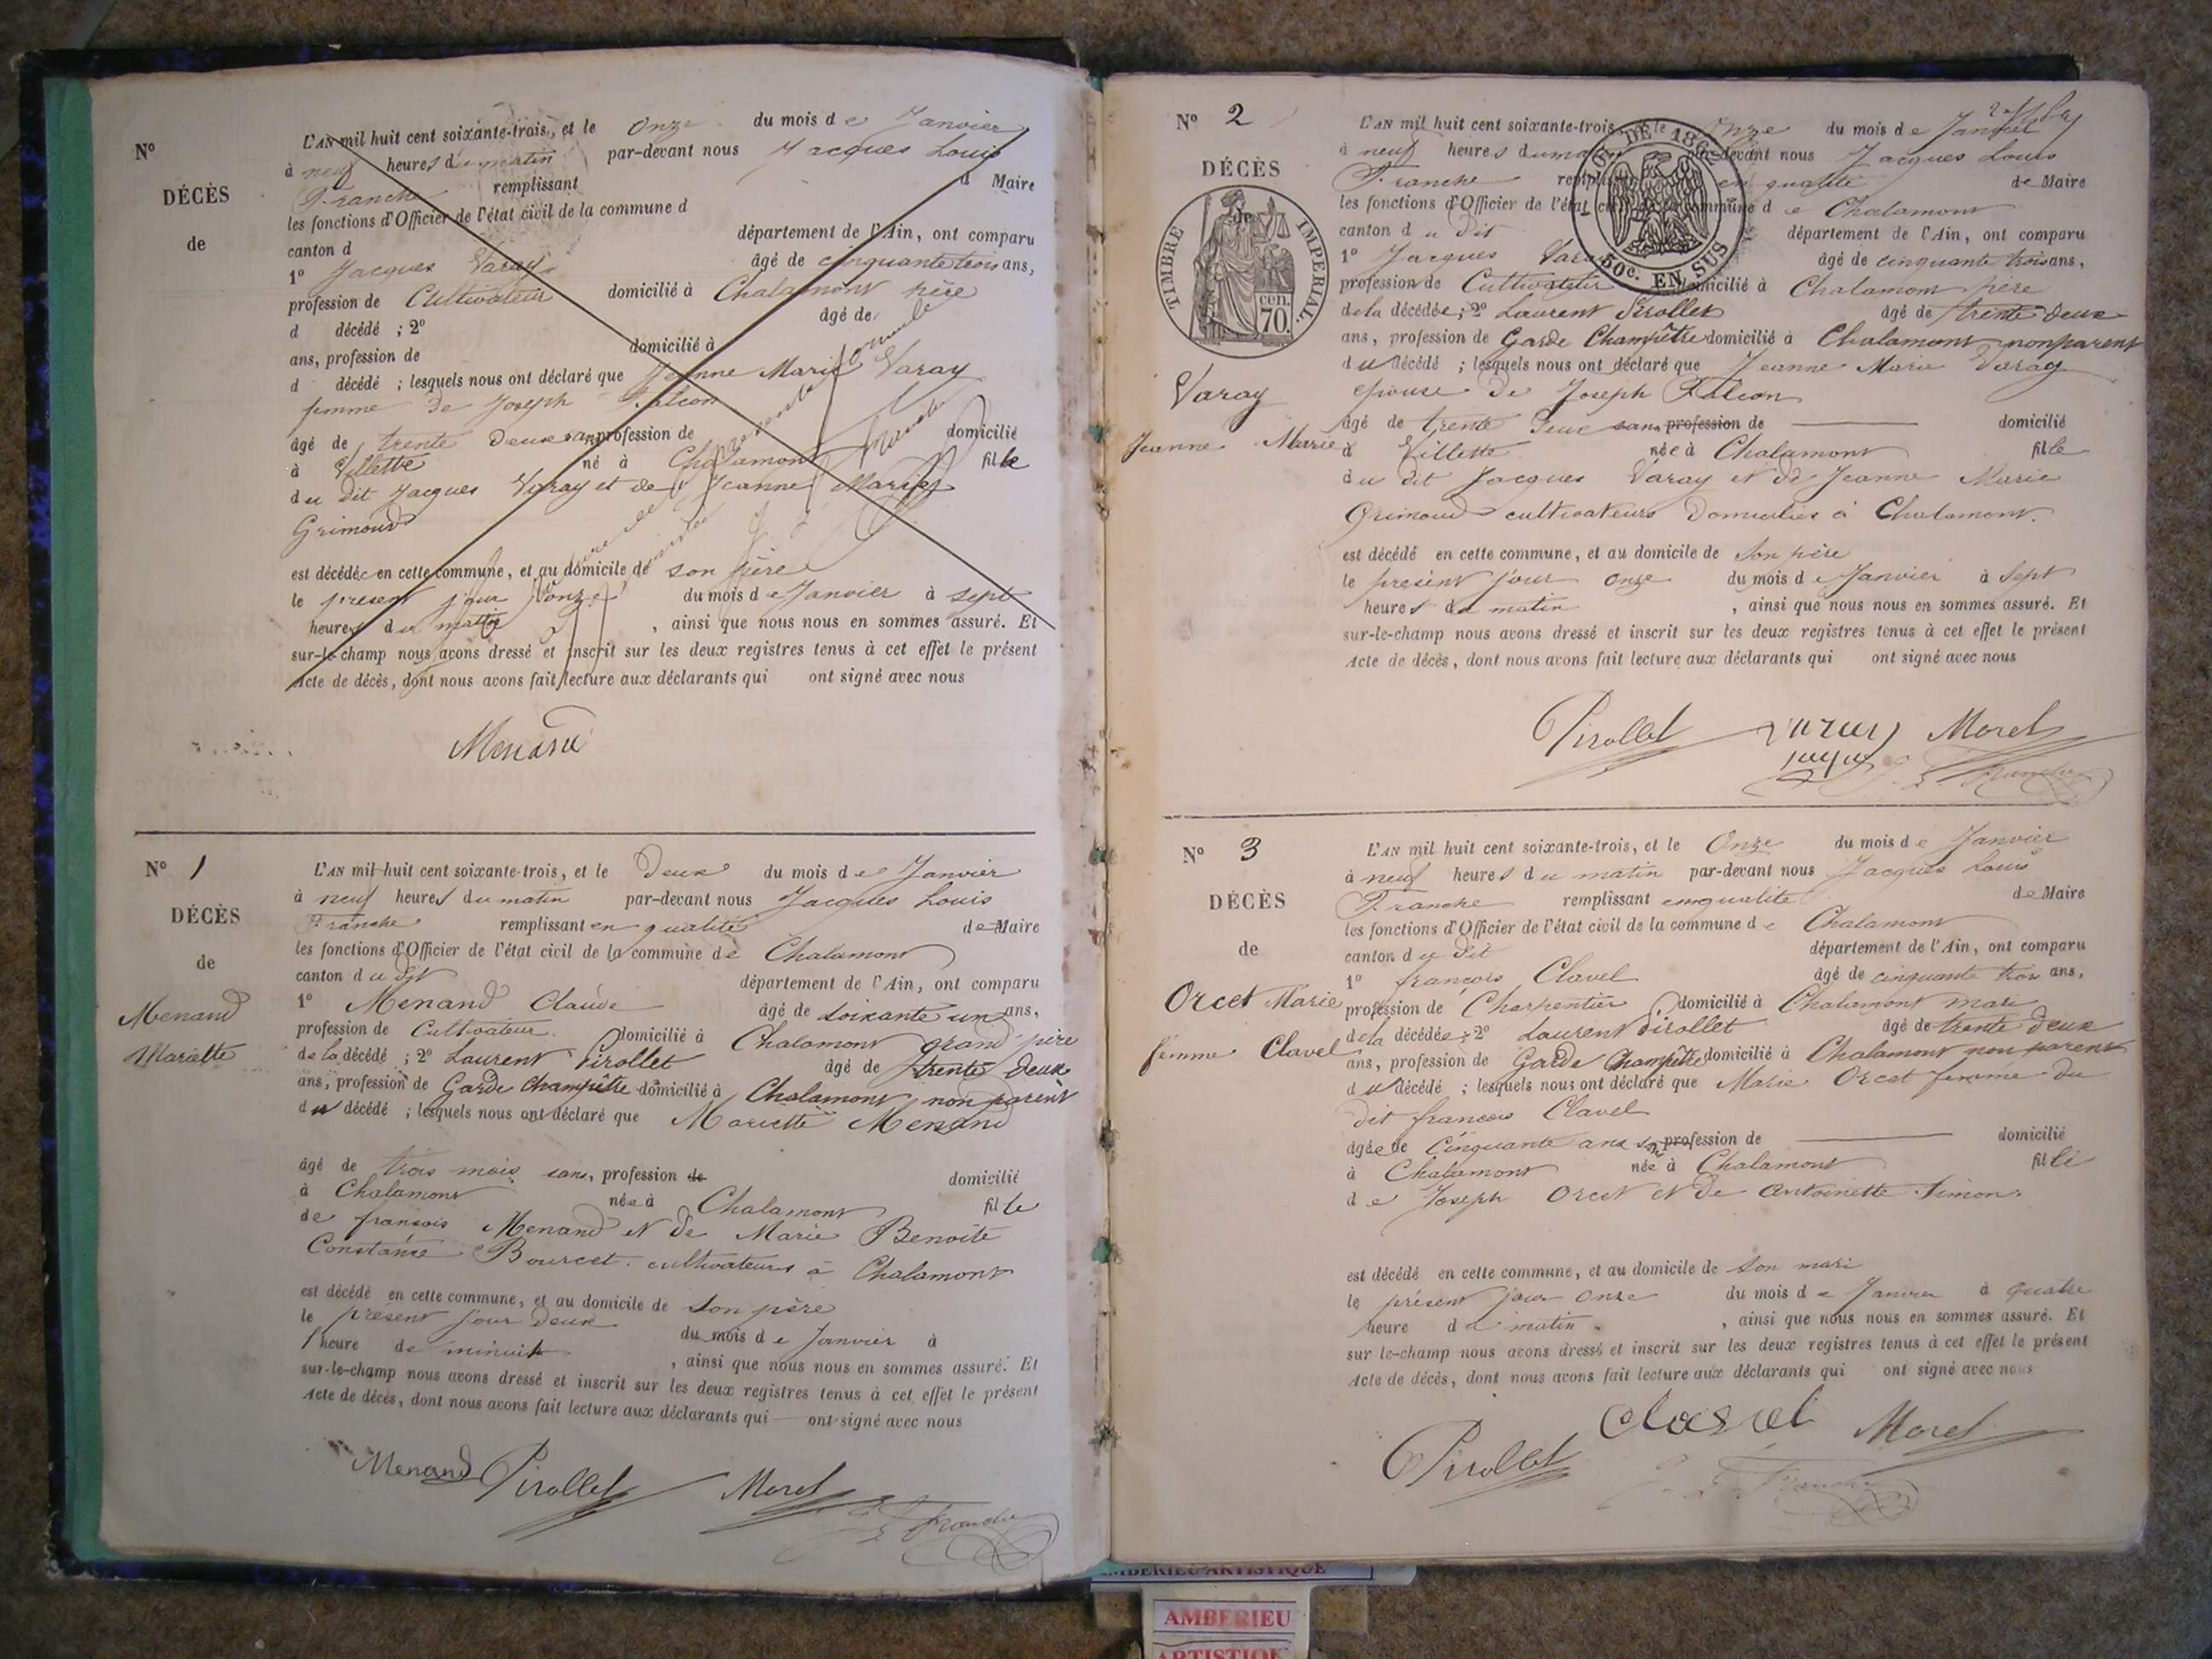 N°
DÉCÈS
de
L'AN mil huit cent soixante-trois, et le onze du mois de Janvier
à neuf heures du matin par-devant nous Jacques Louis
Franche remplissant d Maire
les fonctions d'Officier de l'état civil de la commune d
canton d département de l'Ain, ont comparu
1° Jacques Varay âgé de cinquante trois ans,
profession de Cultivateur domicilié à Chalamont père
d décédé ; 2° âgé de
ans, profession de domicilié à
d décédé ; lesquels nous ont déclaré que Jeanne Marie Varay
femme de Joseph Falcon
âgé de trente deux ans, profession de domicilié
à Villette né à Chalamont fille
du dit Jacques Varay et de Jeanne Marie
Grimoud
est décédée en cette commune, et au domicile de son père
le présent jour onze du mois de Janvier à sept
heures du matin , ainsi que nous nous en sommes assuré. Et
sur-le-champ nous avons dressé et inscrit sur les deux registres tenus à cet effet le présent
Acte de décès, dont nous avons fait lecture aux déclarants qui ont signé avec nous
Menand
N° 1
DÉCÈS
de
Menand
Mariette
L'AN mil huit cent soixante-trois, et le Deux du mois de Janvier
à neuf heures du matin par-devant nous Jacques Louis
Franche remplissant en qualité de Maire
les fonctions d'Officier de l'état civil de la commune de Chalamont
canton du dit département de l'Ain, ont comparu
1° Menand Claude âgé de soixante un ans,
profession de Cultivateur domicilié à Chalamont grand père
de la décédé ; 2° Laurent Pirollet âgé de trente deux
ans, profession de Garde Champêtre domicilié à Chalamont non parent
du décédé ; lesquels nous ont déclaré que Mariette Menand
âgé de trois mois sans, profession de domicilié
à Chalamont née à Chalamont fille
de françois Menand et de Marie Benoite
Constance Bourcet cultivateurs à Chalamont
est décédé en cette commune, et au domicile de son père
le présent jour deux du mois de Janvier à
1 heure de minuit , ainsi que nous nous en sommes assuré. Et
sur-le-champ nous avons dressé et inscrit sur les deux registres tenus à cet effet le présent
Acte de décès, dont nous avons fait lecture aux déclarants qui ont signé avec nous
Menand Pirollet Morel
Franche
N° 2
DÉCÈS
de
TIMBRE IMPERIAL
70 cen.
Varay
Jeanne Marie
DE 186
50c. EN SUS
L'AN mil huit cent soixante-trois, et le Onze du mois de Janvier
à neuf heures du matin par-devant nous Jacques Louis
Franche remplissant en qualité de Maire
les fonctions d'Officier de l'état civil de la commune de Chalamont
canton du dit département de l'Ain, ont comparu
1° Jacques Varay âgé de cinquante trois ans,
profession de Cultivateur domicilié à Chalamont père
de la décédée ; 2° Laurent Pirollet âgé de trente deux
ans, profession de Garde Champêtre domicilié à Chalamont non parent
du décédé ; lesquels nous ont déclaré que Jeanne Marie Varay
épouse de Joseph Falcon
âgé de trente deux sans profession de domicilié
à Villette née à Chalamont fille
du dit Jacques Varay et de Jeanne Marie
Grimoud cultivateurs Domiciliés à Chalamont.
est décédé en cette commune, et au domicile de son père
le présent jour onze du mois de Janvier à sept
heures du matin , ainsi que nous nous en sommes assuré. Et
sur-le-champ nous avons dressé et inscrit sur les deux registres tenus à cet effet le présent
Acte de décès, dont nous avons fait lecture aux déclarants qui ont signé avec nous
Pirollet varay Morel
Franche
N° 3
DÉCÈS
de
Orcet Marie
femme Clavel
L'AN mil huit cent soixante-trois, et le Onze du mois de Janvier
à neuf heures du matin par-devant nous Jacques Louis
Franche remplissant en qualité de Maire
les fonctions d'Officier de l'état civil de la commune de Chalamont
canton du dit département de l'Ain, ont comparu
1° françois Clavel âgé de cinquante trois ans,
profession de Charpentier domicilié à Chalamont mari
de la décédée ; 2° Laurent Pirollet âgé de trente deux
ans, profession de Garde Champêtre domicilié à Chalamont non parent
du décédé ; lesquels nous ont déclaré que Marie Orcet femme du
dit françois Clavel
âgée de Cinquante ans profession de domicilié
à Chalamont née à Chalamont fille
de Joseph Orcet et de Antoinette Simon.
est décédé en cette commune, et au domicile de son mari
le présent jour onze du mois de Janvier à quatre
heure du matin , ainsi que nous nous en sommes assuré. Et
sur le-champ nous avons dressé et inscrit sur les deux registres tenus à cet effet le présent
Acte de décès, dont nous avons fait lecture aux déclarants qui ont signé avec nous
Pirollet Clavel Morel
Franche
AMBERIEU ARTISTIQUE
AMBERIEU
ARTISTIQUE